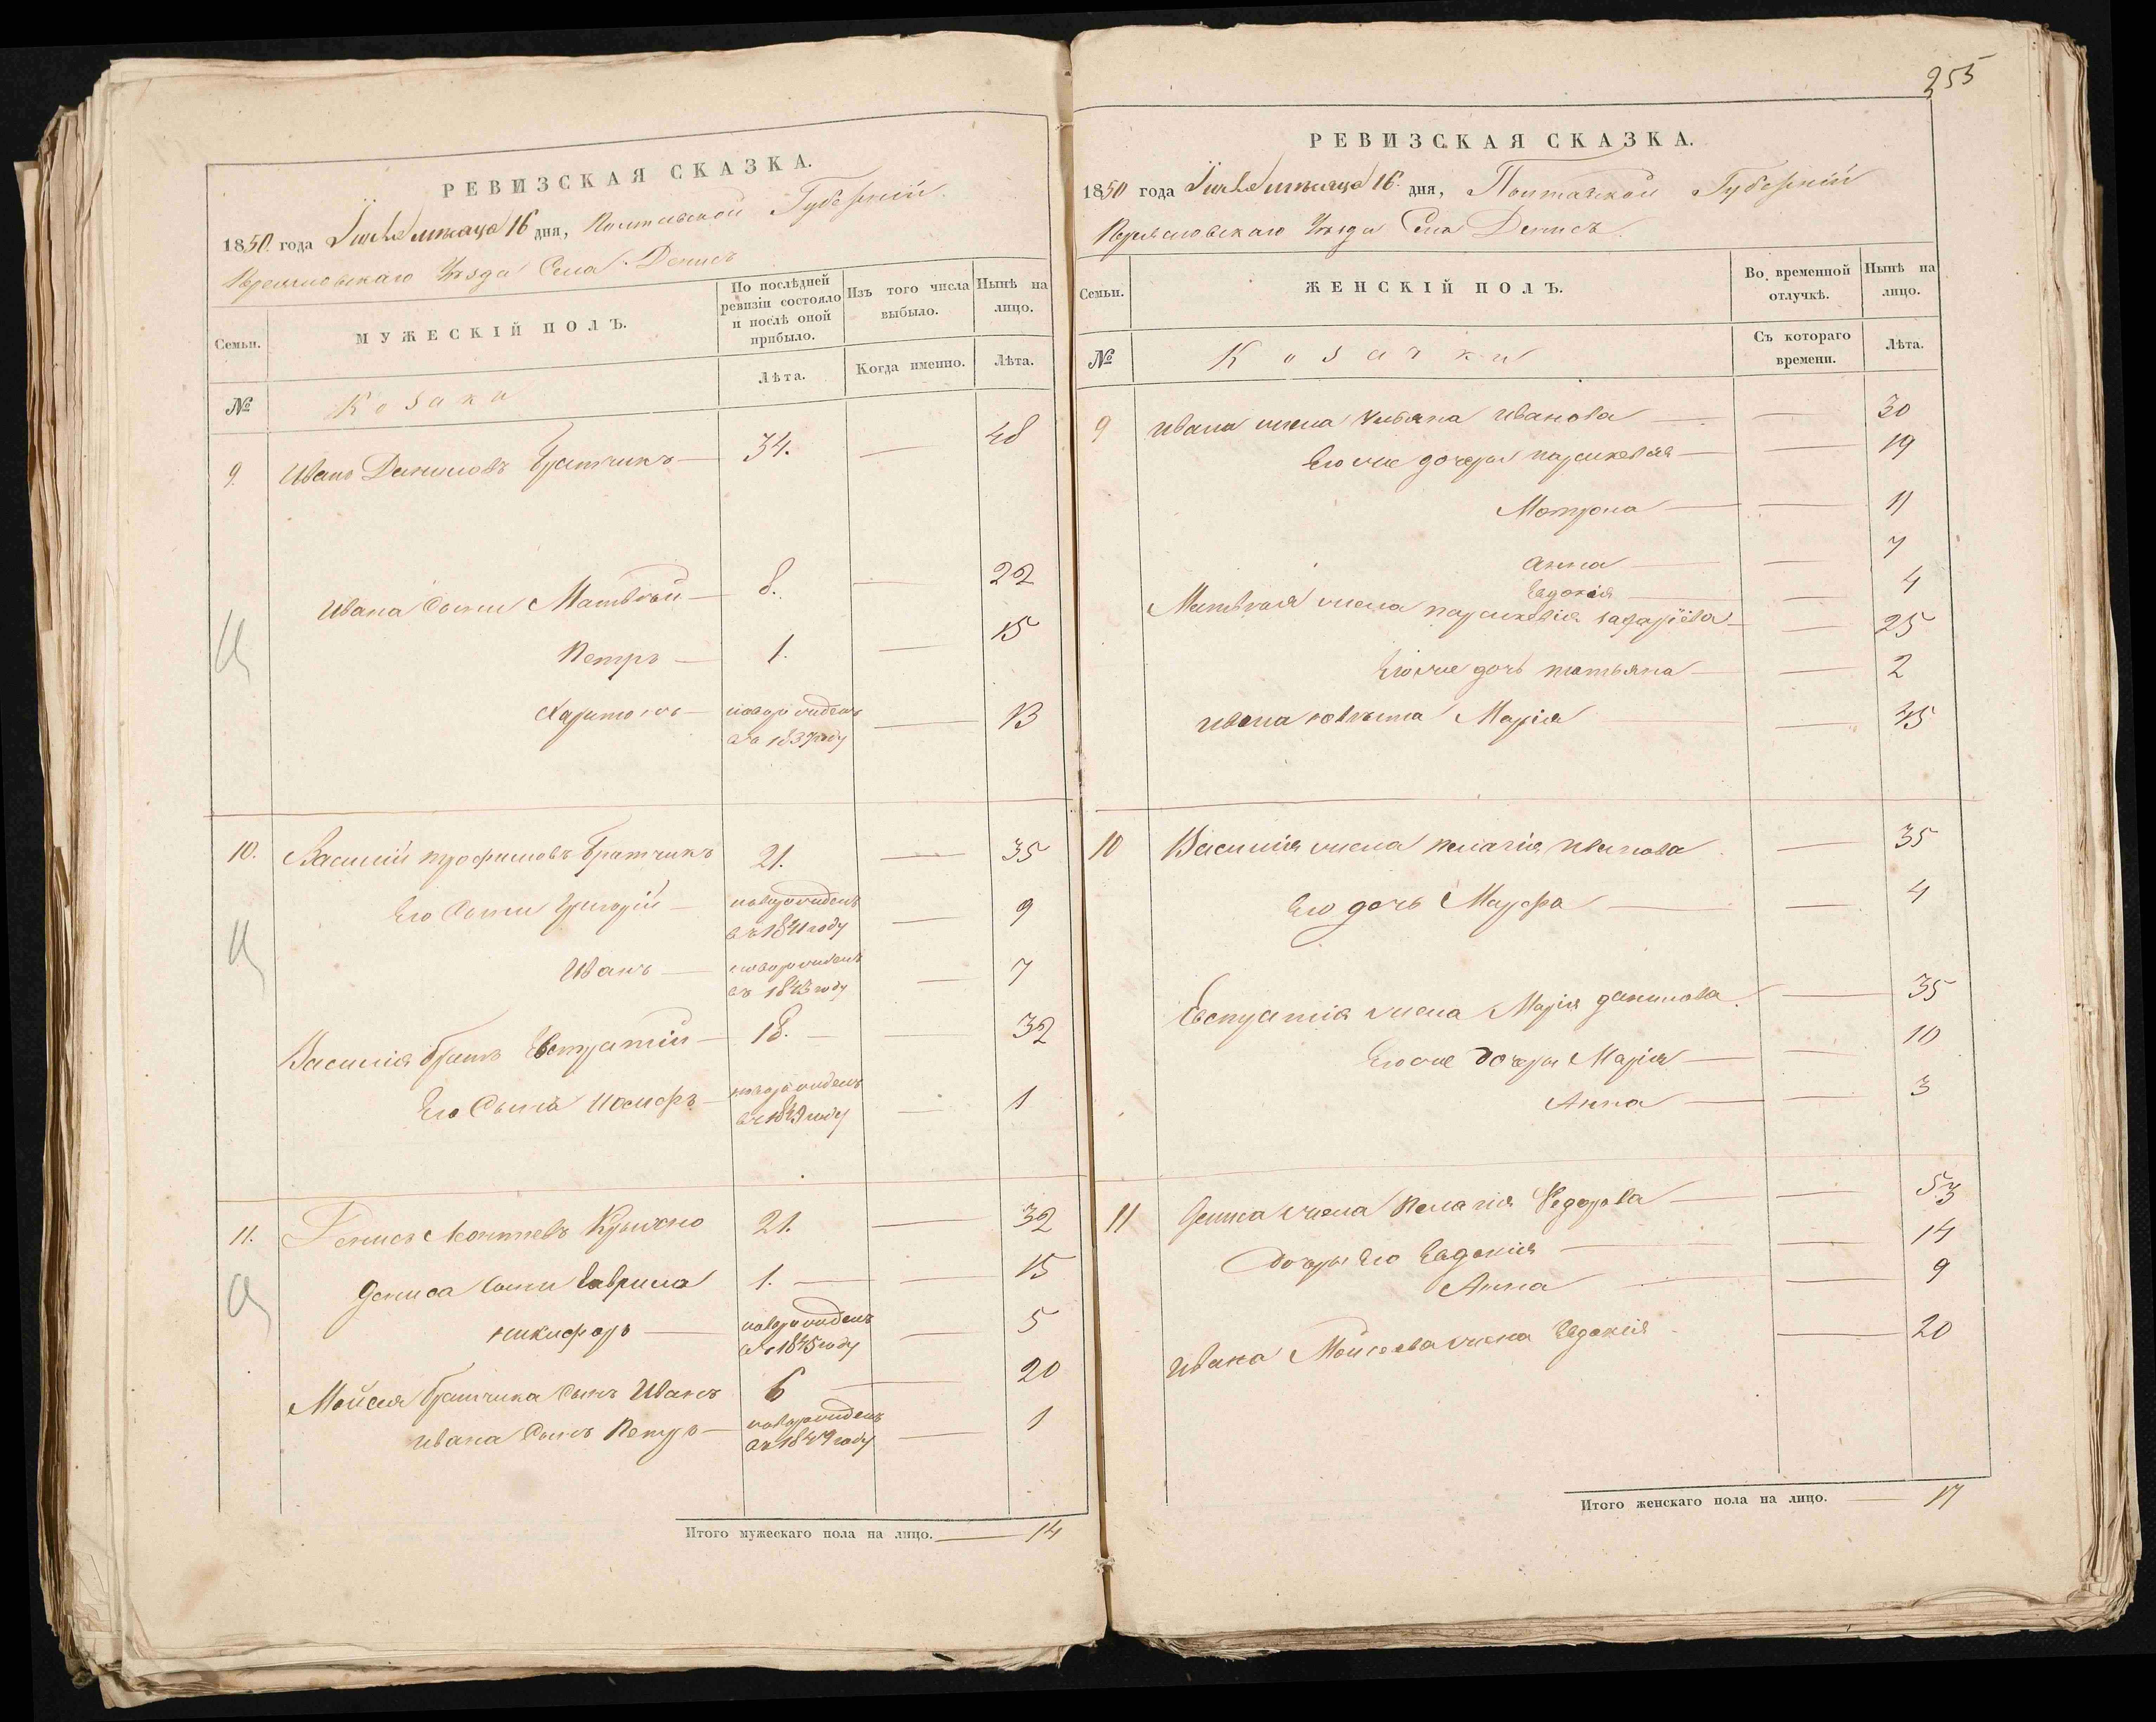 РЕВИЗСКАЯ СКАЗКА.
1850 года Іюля месяца 16 дня, Полтавской Губерніи
Переяславскаго Уезда Села Денисъ
Семьи.
МУЖЕСКІЙ ПОЛЪ.
По послѣдней ревизіи состояло и послѣ оной прибыло.
Изъ того числа выбыло.
Нынѣ на лицо.
№
Козаки
Лѣта.
Когда именно.
Лѣта.
9. Иванъ Даниловъ Братчикъ — 34. — 48
Ивана Сыни Матвѣй — 8. — 22
Петръ — 1. — 15
Харитонъ — новорожденъ въ 1837 году — 13
10. Василій Трофимовъ Братчикъ 21. — 35
Его Сыни Григорій — новорожденъ въ 1841 году — 9
Иванъ — новорожденъ въ 1843 году — 7
Василія братъ Евстратій — 18. — 32
Его Сынъ Иосифъ — новорожденъ въ 1849 году — 1
11. Денисъ Леонтіевъ 21. — 32
Дениса Сыни Гаврила 1. — 15
Никифоръ — новорожденъ въ 1845 году — 5
Мойсея Братчика Сынъ Иванъ 6 — 20
Ивана Сынъ Петръ — новорожденъ въ 1849 году — 1
Итого мужескаго пола на лицо. — 14
255
РЕВИЗСКАЯ СКАЗКА.
1850 года Іюля месяца 16 дня, Полтавской Губерніи
Переяславскаго Уезда Села Денисъ.
Семьи.
ЖЕНСКІЙ ПОЛЪ.
Во временной отлучкѣ.
Нынѣ на лицо.
№
Козачки
Съ котораго времени.
Лѣта.
9 Ивана жена Ульяна Иванова — — 30
Его же дочери Параскевія — — 19
Мотрона — — 11
Анна — — 7
Евдокія — — 4
Матвѣя жена Параскевія — — 25
Его же дочь Татьяна — — 2
Ивана Марія — 45
10 Василія жена Пелагія — 35
Его дочь Марфа — — 4
Евстратія жена Марія Данилова. — 35
Его же дочери Марія — — 10
Анна — — 3
11 Дениса жена Пелагія Федорова — — 33
Дочери Его Евдокія — — 14
Анна — — 9
Ивана Мойсеева жена Евдокія — 20
Итого женскаго пола на лицо. — 17